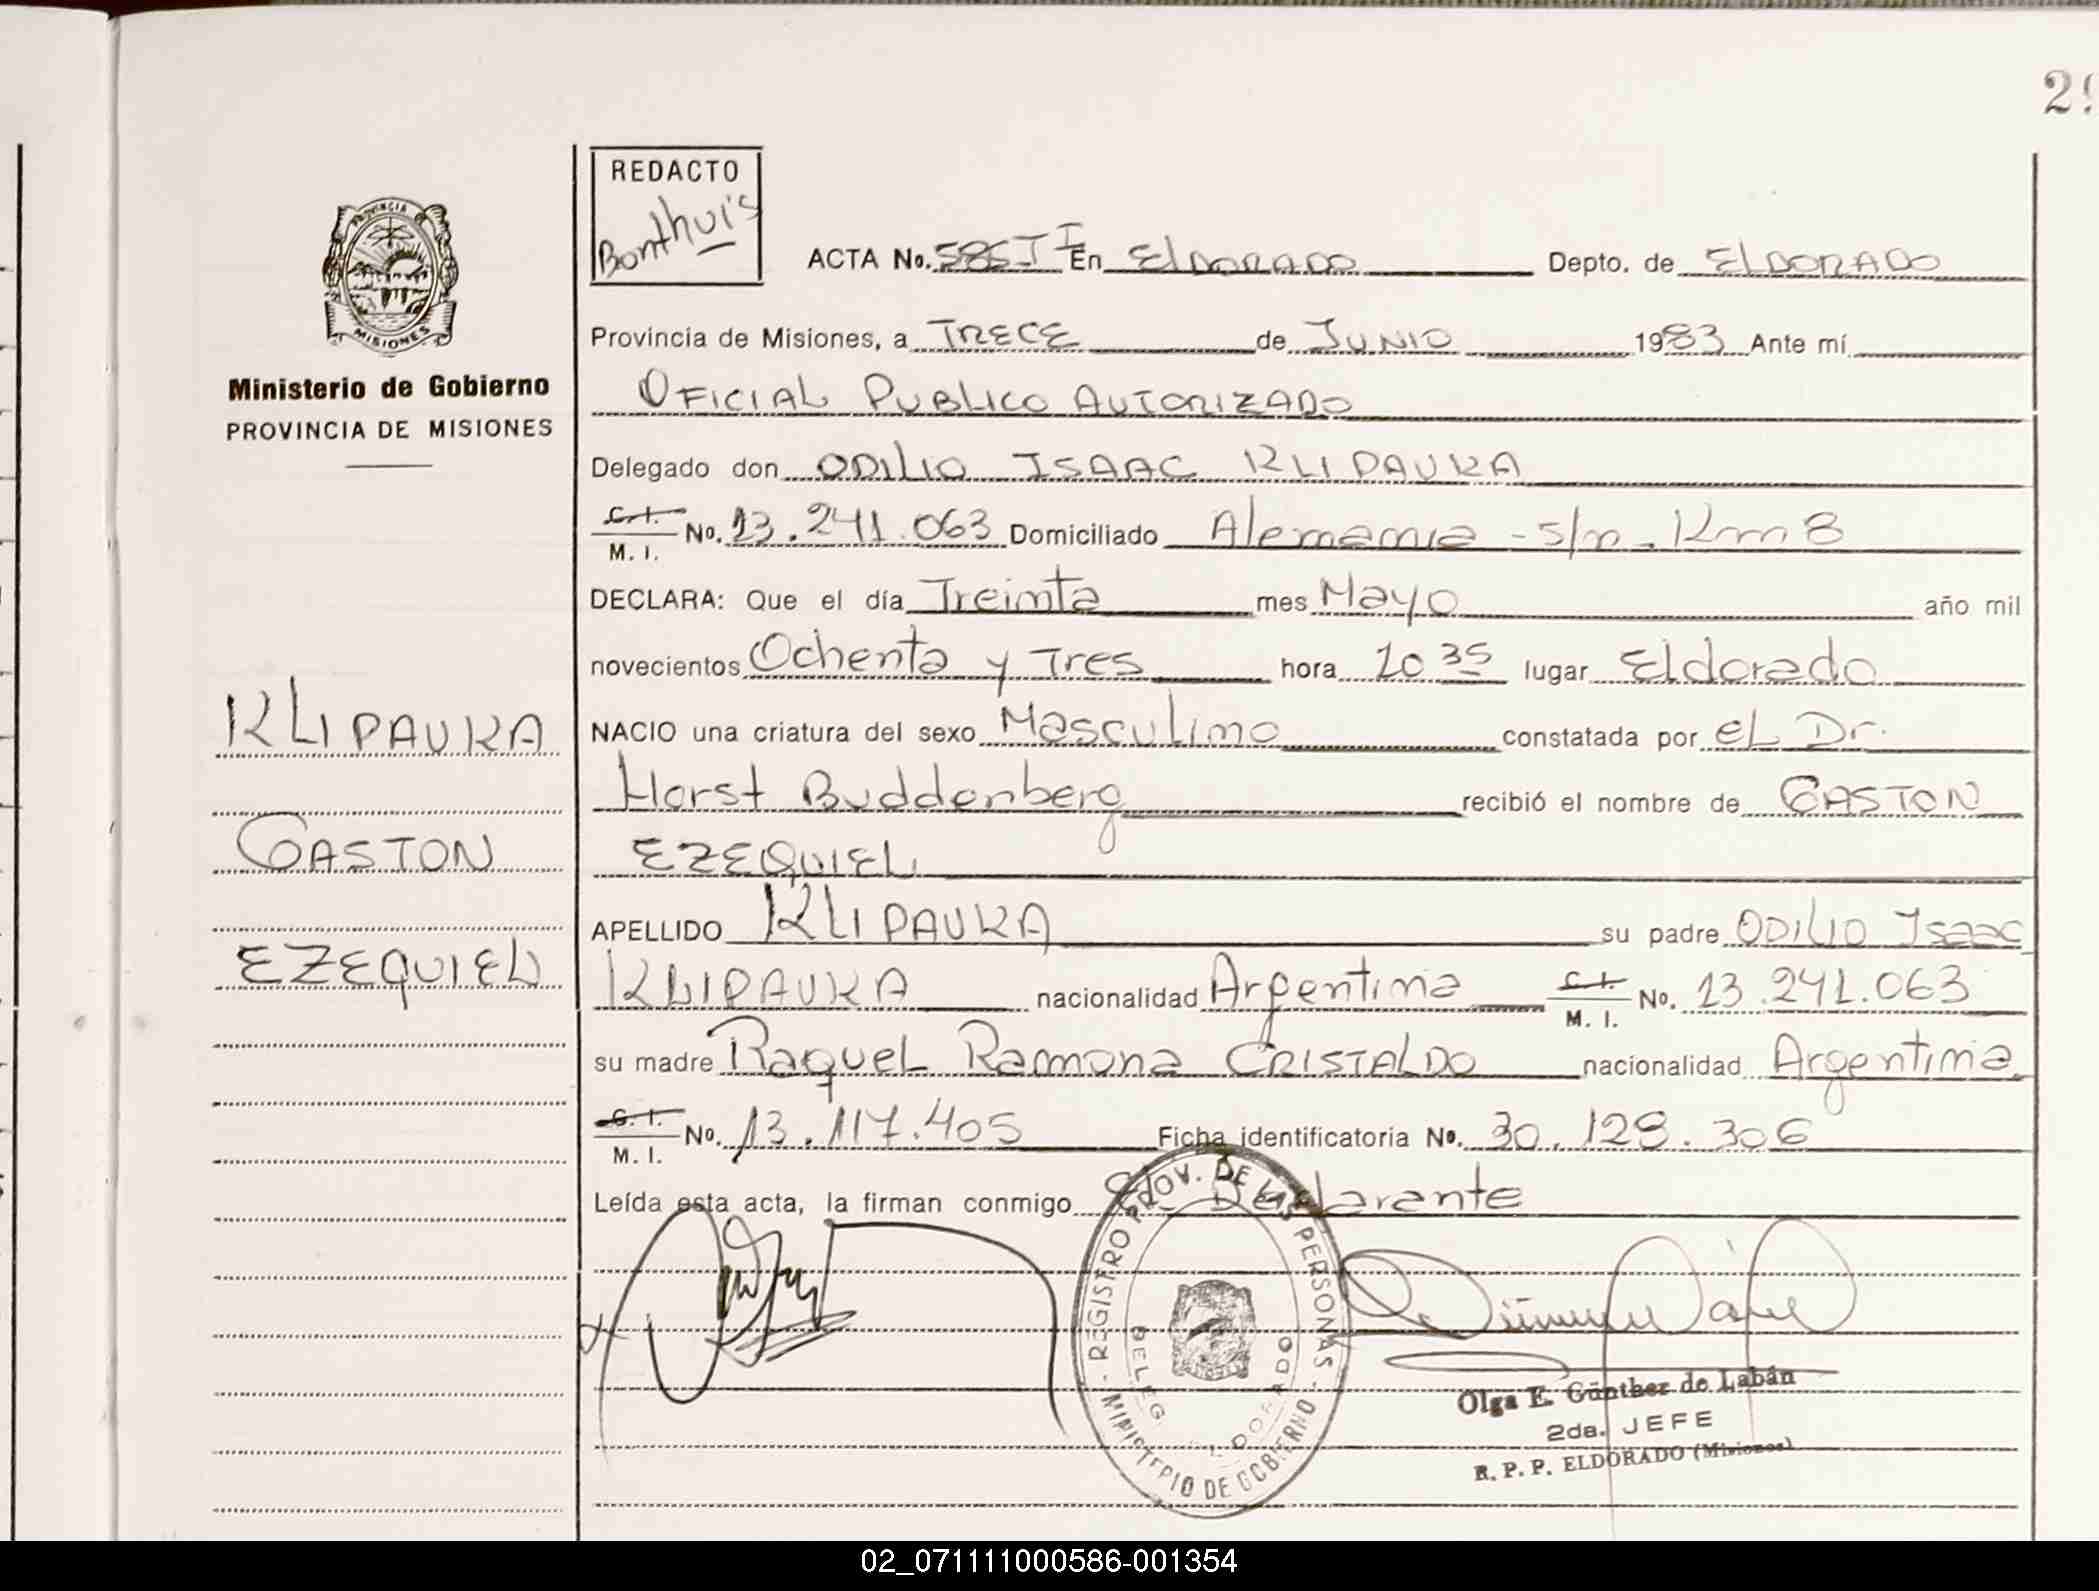 29
REDACTO
Bonthuis
PROVINCIA
MISIONES
Ministerio de Gobierno
PROVINCIA DE MISIONES
ACTA No. 586 T I En ElDORADO Depto. de ElDORADO
Provincia de Misiones, a TRECE de JUNIO 1983 Ante mí
OFICIAL PUBLICO AUTORIZADO
Delegado don ODILIO ISAAC KLIPAUKA
C.I. M. I. No. 13.241.063 Domiciliado Alemania - s/n. Km 8
DECLARA: Que el día Treinta mes Mayo año mil
novecientos Ochenta y Tres hora 10 35 lugar Eldorado
NACIO una criatura del sexo Masculino constatada por eL Dr.
Horst Buddenberg recibió el nombre de GASTON
EZEQUIEL
APELLIDO KLIPAUKA su padre ODILIO Isaac
KLIPAUKA nacionalidad Argentina C.I. M. I. No. 13.241.063
su madre Raquel Ramona CRISTALDO nacionalidad Argentina
C.I. M. I. No. 13.117.405 Ficha identificatoria No. 30.128.306
Leída esta acta, la firman conmigo el Declarante
KLIPAUKA
GASTON
EZEQUIEL
REGISTRO PROV. DE LAS PERSONAS
MINISTERIO DE GOBIERNO
DELEG ELDORADO
Olga E. Günther de Labán
2da. JEFE
R. P. P. ELDORADO (Misiones)
02_071111000586-001354